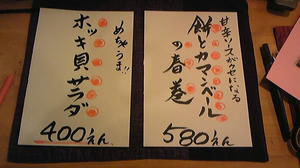 甘辛ソースがクセになる
餅とカマンベール
の春巻
580えん
めちゃうま!!
ホッキ貝サラダ
400えん